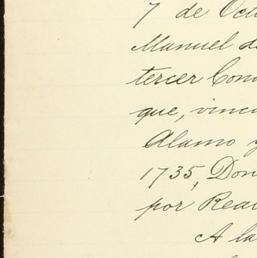 7 de Octu
Manuel de
tercer Cond
que, vincu
Alamo y
1735, Don
por Real
A la